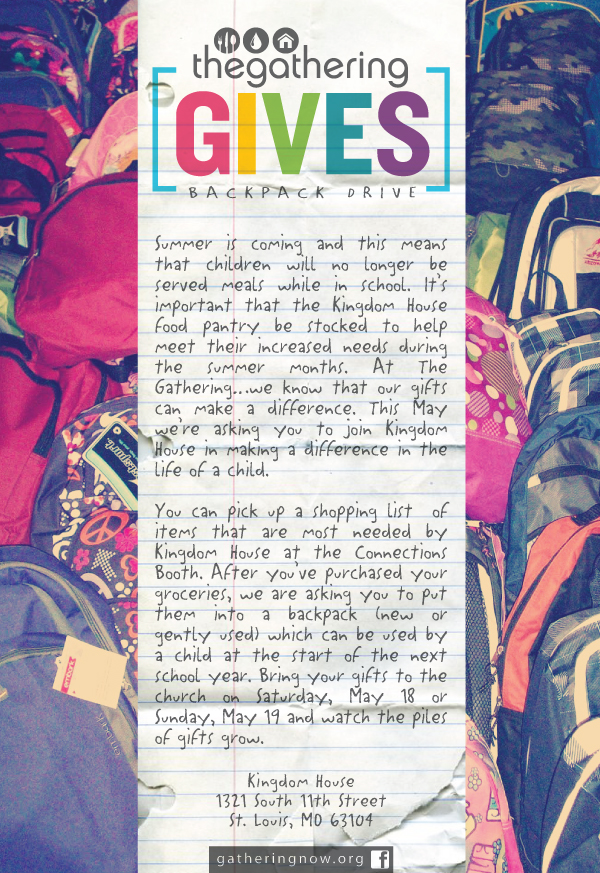 thegathering
GIVES
BACKPACK DRIVE
Summer is coming and this means
that children will no longer be
served meals while in school. It's
important that the Kingdom House
food pantry be stocked to help
meet their increased needs during
the summer months. At The
Gathering...we know that our gifts
can make a difference. This May
we're asking you to join Kingdom
House in making a difference in the
life of a child.
You can pick up a shopping list of
items that are most needed by
Kingdom House at the Connections
Booth. After you've purchased your
groceries, we are asking you to put
them into a backpack (new or
gently used) which can be used by
a child at the start of the next
school year. Bring your gifts to the
church on Saturday, May 18 or
Sunday, May 19 and watch the piles
of gifts grow.
Kingdom House
1321 South 11th Street
St. Louis, MO 63104
gatheringnow.org f